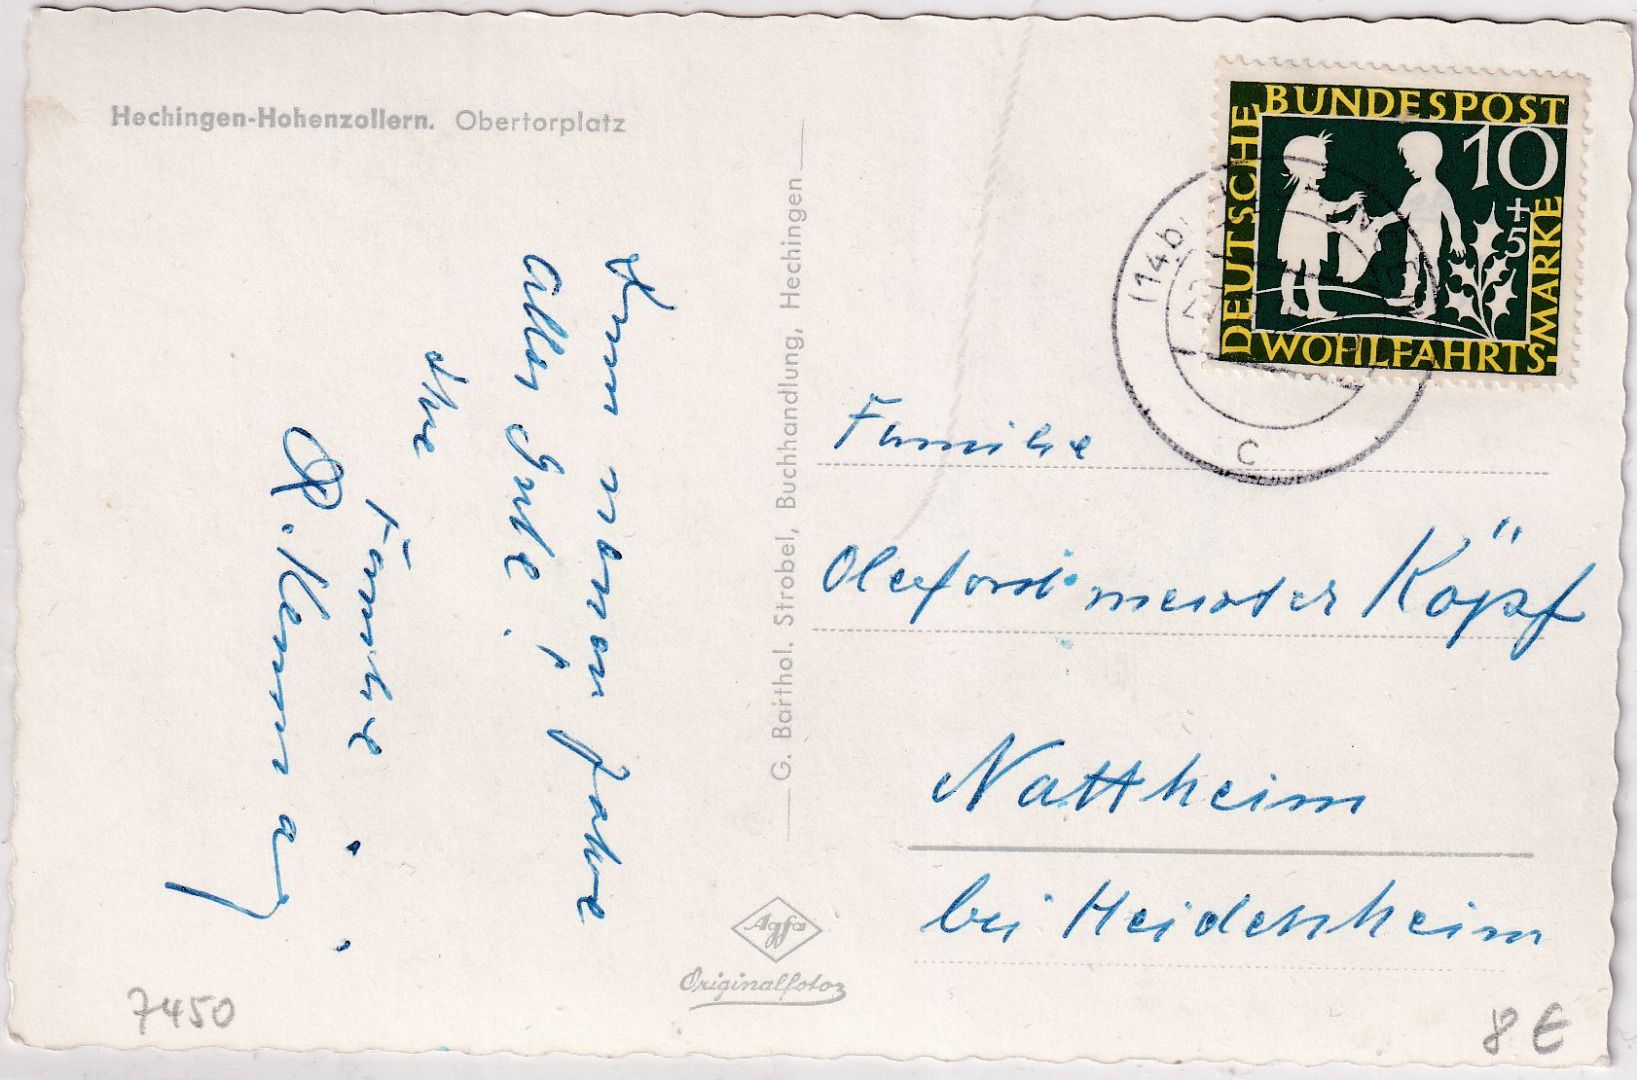 Hechingen-Hohenzollern. Obertorplatz
Zum neuen Jahre
alles Gute!
Ihre
Familie
G. Barthol. Strobel, Buchhandlung, Hechingen
Agfa
Originalfoto
DEUTSCHE BUNDESPOST
10
+5
WOHLFAHRTS-MARKE
(14b)
c
Familie
Oberforstmeister Köpf
Nattheim
bei Heidenheim
7450
8 €